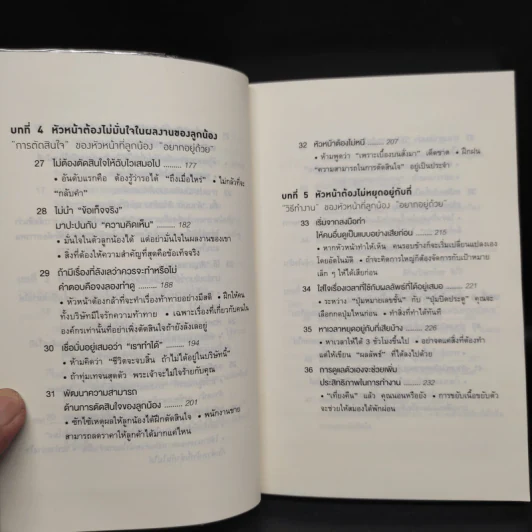 บทที่ 4 หัวหน้าต้องไม่มั่นใจในผลงานของลูกน้อง
"การตัดสินใจ" ของหัวหน้าที่ลูกน้อง "อยากอยู่ด้วย"
27 ไม่ต้องตัดสินใจให้ฉับไวเสมอไป .......... 177
• อันดับแรกคือ ต้องรู้ว่ารอได้ "ถึงเมื่อไหร่" • ไม่กล้าที่จะ
"กลับคำ"
28 ไม่นำ "ข้อเท็จจริง"
มาปะปนกับ "ความคิดเห็น" .......... 182
• มั่นใจในตัวลูกน้องได้ แต่อย่ามั่นใจในผลงานของเขา
• สิ่งที่ต้องให้ความสำคัญที่สุดคือข้อเท็จจริง
29 ถ้ามีเรื่องที่ลังเลว่าควรจะทำหรือไม่
คำตอบคือจงลองทำดู .......... 188
• หัวหน้าต้องกล้าที่จะทำเรื่องท้าทายอย่างมีสติ • ฝึกให้คน
ทั้งบริษัทมีใจรักความท้าทาย • เฉพาะเรื่องที่เกี่ยวกับคนใน
องค์กรเท่านั้นที่อย่าเพิ่งตัดสินใจถ้ายังลังเลอยู่
30 เชื่อมั่นอยู่เสมอว่า "เราทำได้" .......... 194
• ห้ามคิดว่า "ชีวิตจะจบสิ้น ถ้าไม่ได้อยู่ในบริษัทนี้"
• ถ้าทุ่มเทจนสุดตัว พระเจ้าจะไม่ใจร้ายกับคุณ
31 พัฒนาความสามารถ
ด้านการตัดสินใจของลูกน้อง .......... 201
• ซักไซ้เหตุผลให้ลูกน้องได้ฝึกตัดสินใจ • พนักงานขาย
สามารถลดราคาให้ลูกค้าได้มากแค่ไหน
32 หัวหน้าต้องไม่หนี .......... 207
• ห้ามพูดว่า "เพราะเบื้องบนสั่งมา" เด็ดขาด • ฝึกฝน
"ความสามารถในการตัดสินใจ" อยู่เป็นประจำ
บทที่ 5 หัวหน้าต้องไม่หยุดอยู่กับที่
"วิธีทำงาน" ของหัวหน้าที่ลูกน้อง "อยากอยู่ด้วย"
33 เริ่มจากลงมือทำ
ให้คนอื่นดูเป็นแบบอย่างเสียก่อน .......... 215
• หากหัวหน้าทำให้เห็น คนรอบข้างก็จะเริ่มเปลี่ยนแปลงเอง
โดยอัตโนมัติ • ถ้าจะคิดการใหญ่ก็ต้องจัดการกับเป้าหมาย
เล็ก ๆ ให้ได้เสียก่อน
34 ใส่ใจเรื่องเวลาที่ใช้กับผลลัพธ์ที่ได้อยู่เสมอ .......... 221
• ระหว่าง "ปุ่มหมายเลขชั้น" กับ "ปุ่มปิดประตู" คุณจะ
เลือกกดปุ่มไหนก่อน • ทำสิ่งที่ทำได้ทันที
35 หาเวลาหยุดอยู่กับที่เสียบ้าง .......... 226
• หาเวลาให้ได้ 3 ชั่วโมงขึ้นไป • อย่าจดแค่สิ่งที่ต้องทำ
แต่ให้เขียน "ผลลัพธ์" ที่ได้ลงไปด้วย
36 การดูแลตัวเองจะช่วยเพิ่ม
ประสิทธิภาพในการทำงาน .......... 232
• "เที่ยงคืน" แล้ว คุณนอนหรือยัง • การขยับเนื้อขยับตัว
จะช่วยให้สมองได้พักผ่อน